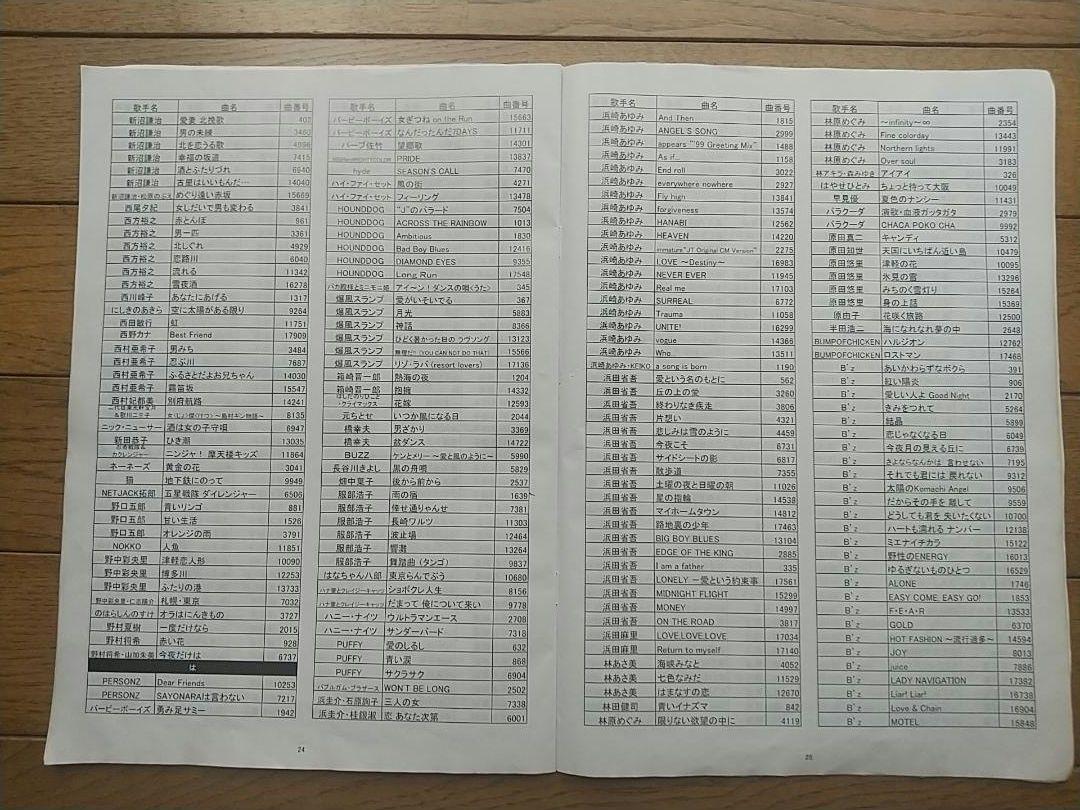 歌手名 曲名 曲番号
新沼謙治 愛妻 北挽歌 402
新沼謙治 男の未練 3460
新沼謙治 北を恋うる歌 4996
新沼謙治 幸福の坂道 7415
新沼謙治 酒とふたりづれ 6940
新沼謙治 古里はいいもんだ… 14040
めぐり逢い赤坂 15669
西尾夕紀 女しだいで男も変わる 3841
西方裕之 赤とんぼ 961
西方裕之 男一匹 3361
西方裕之 北しぐれ 4929
西方裕之 恋路川 6040
西方裕之 流れる 11342
西方裕之 雪夜酒 16278
西川峰子 あなたにあげる 1317
にしきのあきら 空に太陽がある限り 9264
西田敏行 虹 11751
西野カナ Best Friend 17909
西村亜希子 男みち 3484
西村亜希子 忍ぶ川 7687
西村亜希子 ふるさとだよお兄ちゃん 14030
西村亜希子 霧笛坂 15547
西村妃都美 別府航路 14241
8135
ニック・ニューサー 酒は女の子守唄 6947
新田恭子 ひき潮 13035
ニンジャ! 摩天楼キッズ 11864
ネーネーズ 黄金の花 3041
猫 地下鉄にのって 9949
NETJACK拓郎 五星戦隊 ダイレンジャー 6506
野口五郎 青いリンゴ 881
野口五郎 甘い生活 1526
野口五郎 オレンジの雨 3791
NOKKO 人魚 11851
野中彩央里 津軽恋人形 10090
野中彩央里 博多川 12253
野中彩央里 ふたりの港 13733
野中彩央里・仁志陽介 札幌・東京 7032
のはらしんのすけ オラはにんきもの 3727
野村夏樹 一度だけなら 2015
野村将希 赤い花 928
野村将希・山加朱美 今夜だけは 6737
は
PERSONZ Dear Friends 10253
PERSONZ SAYONARAは言わない 7217
バービーボーイズ 勇み足サミー 1942
24
歌手名 曲名 曲番号
バービーボーイズ 女ぎつね on the Run 15663
バービーボーイズ なんだったんだ7DAYS 11711
バーブ佐竹 望郷歌 14301
PRIDE 13837
hyde SEASON'S CALL 7470
ハイ・ファイ・セット 風の街 4271
ハイ・ファイ・セット フィーリング 13478
HOUNDDOG "J"のバラード 7504
HOUNDDOG ACROSS THE RAINBOW 1013
HOUNDDOG Ambitious 1830
HOUNDDOG Bad Boy Blues 12416
HOUNDDOG DIAMOND EYES 9355
HOUNDDOG Long Run 17548
バカ殿様とミニモニ姫 アイ〜ン!ダンスの唄<うた> 345
爆風スランプ 愛がいそいでる 367
爆風スランプ 月光 5883
爆風スランプ 神話 8366
爆風スランプ ひどく暑かった日の ラヴソング 13123
爆風スランプ 無理だ!! (YOU CAN NOT DO THAT) 15566
爆風スランプ リゾ・ラバ (resort lovers) 17136
箱崎晋一郎 熱海の夜 1204
箱崎晋一郎 抱擁 14332
はしだのりひことクライマックス 花嫁 12593
元ちとせ いつか風になる日 2044
橋幸夫 男ざかり 3369
橋幸夫 盆ダンス 14722
BUZZ ケンとメリー 〜愛と風のように〜 5990
長谷川きよし 黒の舟唄 5829
畑中葉子 後から前から 2537
服部浩子 雨の宿 1639
服部浩子 倖せ通りゃんせ 7381
服部浩子 長崎ワルツ 11303
服部浩子 波止場 12464
服部浩子 響灘 13264
服部浩子 舞踏曲 (タンゴ) 9837
はなちゃん八郎 東京らんでぶう 10680
ハナ肇とクレイジーキャッツ ショボクレ人生 8156
ハナ肇とクレイジーキャッツ だまって 俺について来い 9778
ハニー・ナイツ ウルトラマンエース 2708
ハニー・ナイツ サンダーバード 7318
PUFFY 愛のしるし 632
PUFFY 青い涙 868
PUFFY サクラサク 6904
バブルガム・ブラザーズ WON'T BE LONG 2502
浜圭介・石原詢子 三人の女 7338
浜圭介・桂銀淑 恋 あなた次第 6001
歌手名 曲名 曲番号
浜崎あゆみ And Then 1815
浜崎あゆみ ANGEL'S SONG 2999
浜崎あゆみ appears "'99 Greeting Mix" 1488
浜崎あゆみ As if... 1158
浜崎あゆみ End roll 3022
浜崎あゆみ everywhere nowhere 2927
浜崎あゆみ Fly high 13841
浜崎あゆみ forgiveness 13574
浜崎あゆみ HANABI 12562
浜崎あゆみ HEAVEN 14220
浜崎あゆみ immature"JT Original CM Version" 2275
浜崎あゆみ LOVE 〜Destiny〜 16983
浜崎あゆみ NEVER EVER 11945
浜崎あゆみ Real me 17103
浜崎あゆみ SURREAL 6772
浜崎あゆみ Trauma 11058
浜崎あゆみ UNITE! 16299
浜崎あゆみ vogue 14366
浜崎あゆみ Who... 13511
浜崎あゆみ・KEIKO a song is born 1190
浜田省吾 愛という名のもとに 562
浜田省吾 丘の上の愛 3260
浜田省吾 終わりなき疾走 3806
浜田省吾 片想い 4321
浜田省吾 悲しみは雪のように 4459
浜田省吾 今夜こそ 6731
浜田省吾 サイドシートの影 6817
浜田省吾 散歩道 7355
浜田省吾 土曜の夜と日曜の朝 11026
浜田省吾 星の指輪 14538
浜田省吾 マイホームタウン 14812
浜田省吾 路地裏の少年 17463
浜田省吾 BIG BOY BLUES 13104
浜田省吾 EDGE OF THE KING 2885
浜田省吾 I am a father 335
浜田省吾 LONELY －愛という約束事 17561
浜田省吾 MIDNIGHT FLIGHT 15299
浜田省吾 MONEY 14997
浜田省吾 ON THE ROAD 3817
浜田麻里 LOVE,LOVE,LOVE 17034
浜田麻里 Return to myself 17140
林あさ美 海峡みなと 4052
林あさ美 七色なみだ 11529
林あさ美 はまなすの恋 12670
林田健司 青いイナズマ 842
林原めぐみ 限りない欲望の中に 4119
25
歌手名 曲名 曲番号
林原めぐみ 〜infinity〜∞ 2354
林原めぐみ Fine colorday 13443
林原めぐみ Northern lights 11991
林原めぐみ Over soul 3183
林アキラ・森みゆき アイアイ 326
はやせひとみ ちょっと待って大阪 10049
早見優 夏色のナンシー 11431
バラクーダ 演歌・血液ガッタガタ 2979
バラクーダ CHACA POKO CHA 9992
原田真二 キャンディ 5312
原田知世 天国にいちばん近い島 10479
原田悠里 津軽の花 10095
原田悠里 氷見の雪 13296
原田悠里 みちのく雪灯り 15264
原田悠里 身の上話 15369
原由子 花咲く旅路 12500
半田浩二 海になれなれ夢の中 2648
BUMPOFCHICKEN ハルジオン 12762
BUMPOFCHICKEN ロストマン 17468
B'z あいかわらずなボクら 391
B'z 紅い陽炎 906
B'z 愛しい人よ Good Night 2170
B'z きみをつれて 5264
B'z 結晶 5899
B'z 恋じゃなくなる日 6049
B'z 今夜月の見える丘に 6739
B'z さよならなんかは 言わせない 7195
B'z それでも君には 戻れない 9312
B'z 太陽のKomachi Angel 9506
B'z だからその手を 離して 9559
B'z どうしても君を 失いたくない 10700
B'z ハートも濡れる ナンバー 12138
B'z ミエナイチカラ 15122
B'z 野性のENERGY 16013
B'z ゆるぎないものひとつ 16529
B'z ALONE 1746
B'z EASY COME, EASY GO! 1853
B'z F・E・A・R 13533
B'z GOLD 6370
B'z HOT FASHION 〜流行過多〜 14594
B'z JOY 8013
B'z juice 7886
B'z LADY NAVIGATION 17382
B'z Liar! Liar! 16738
B'z Love & Chain 16904
B'z MOTEL 15848